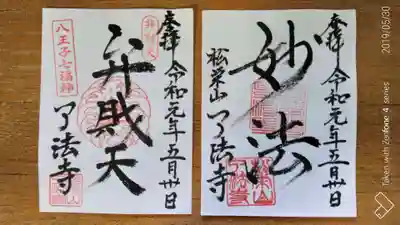 奉拝
令和元年五月卅日
弁財天
八王子七福神
了法寺
奉拝
令和元年五月卅日
妙法
松栄山
了法寺
2019/05/30
Taken with Zenfone 4 series